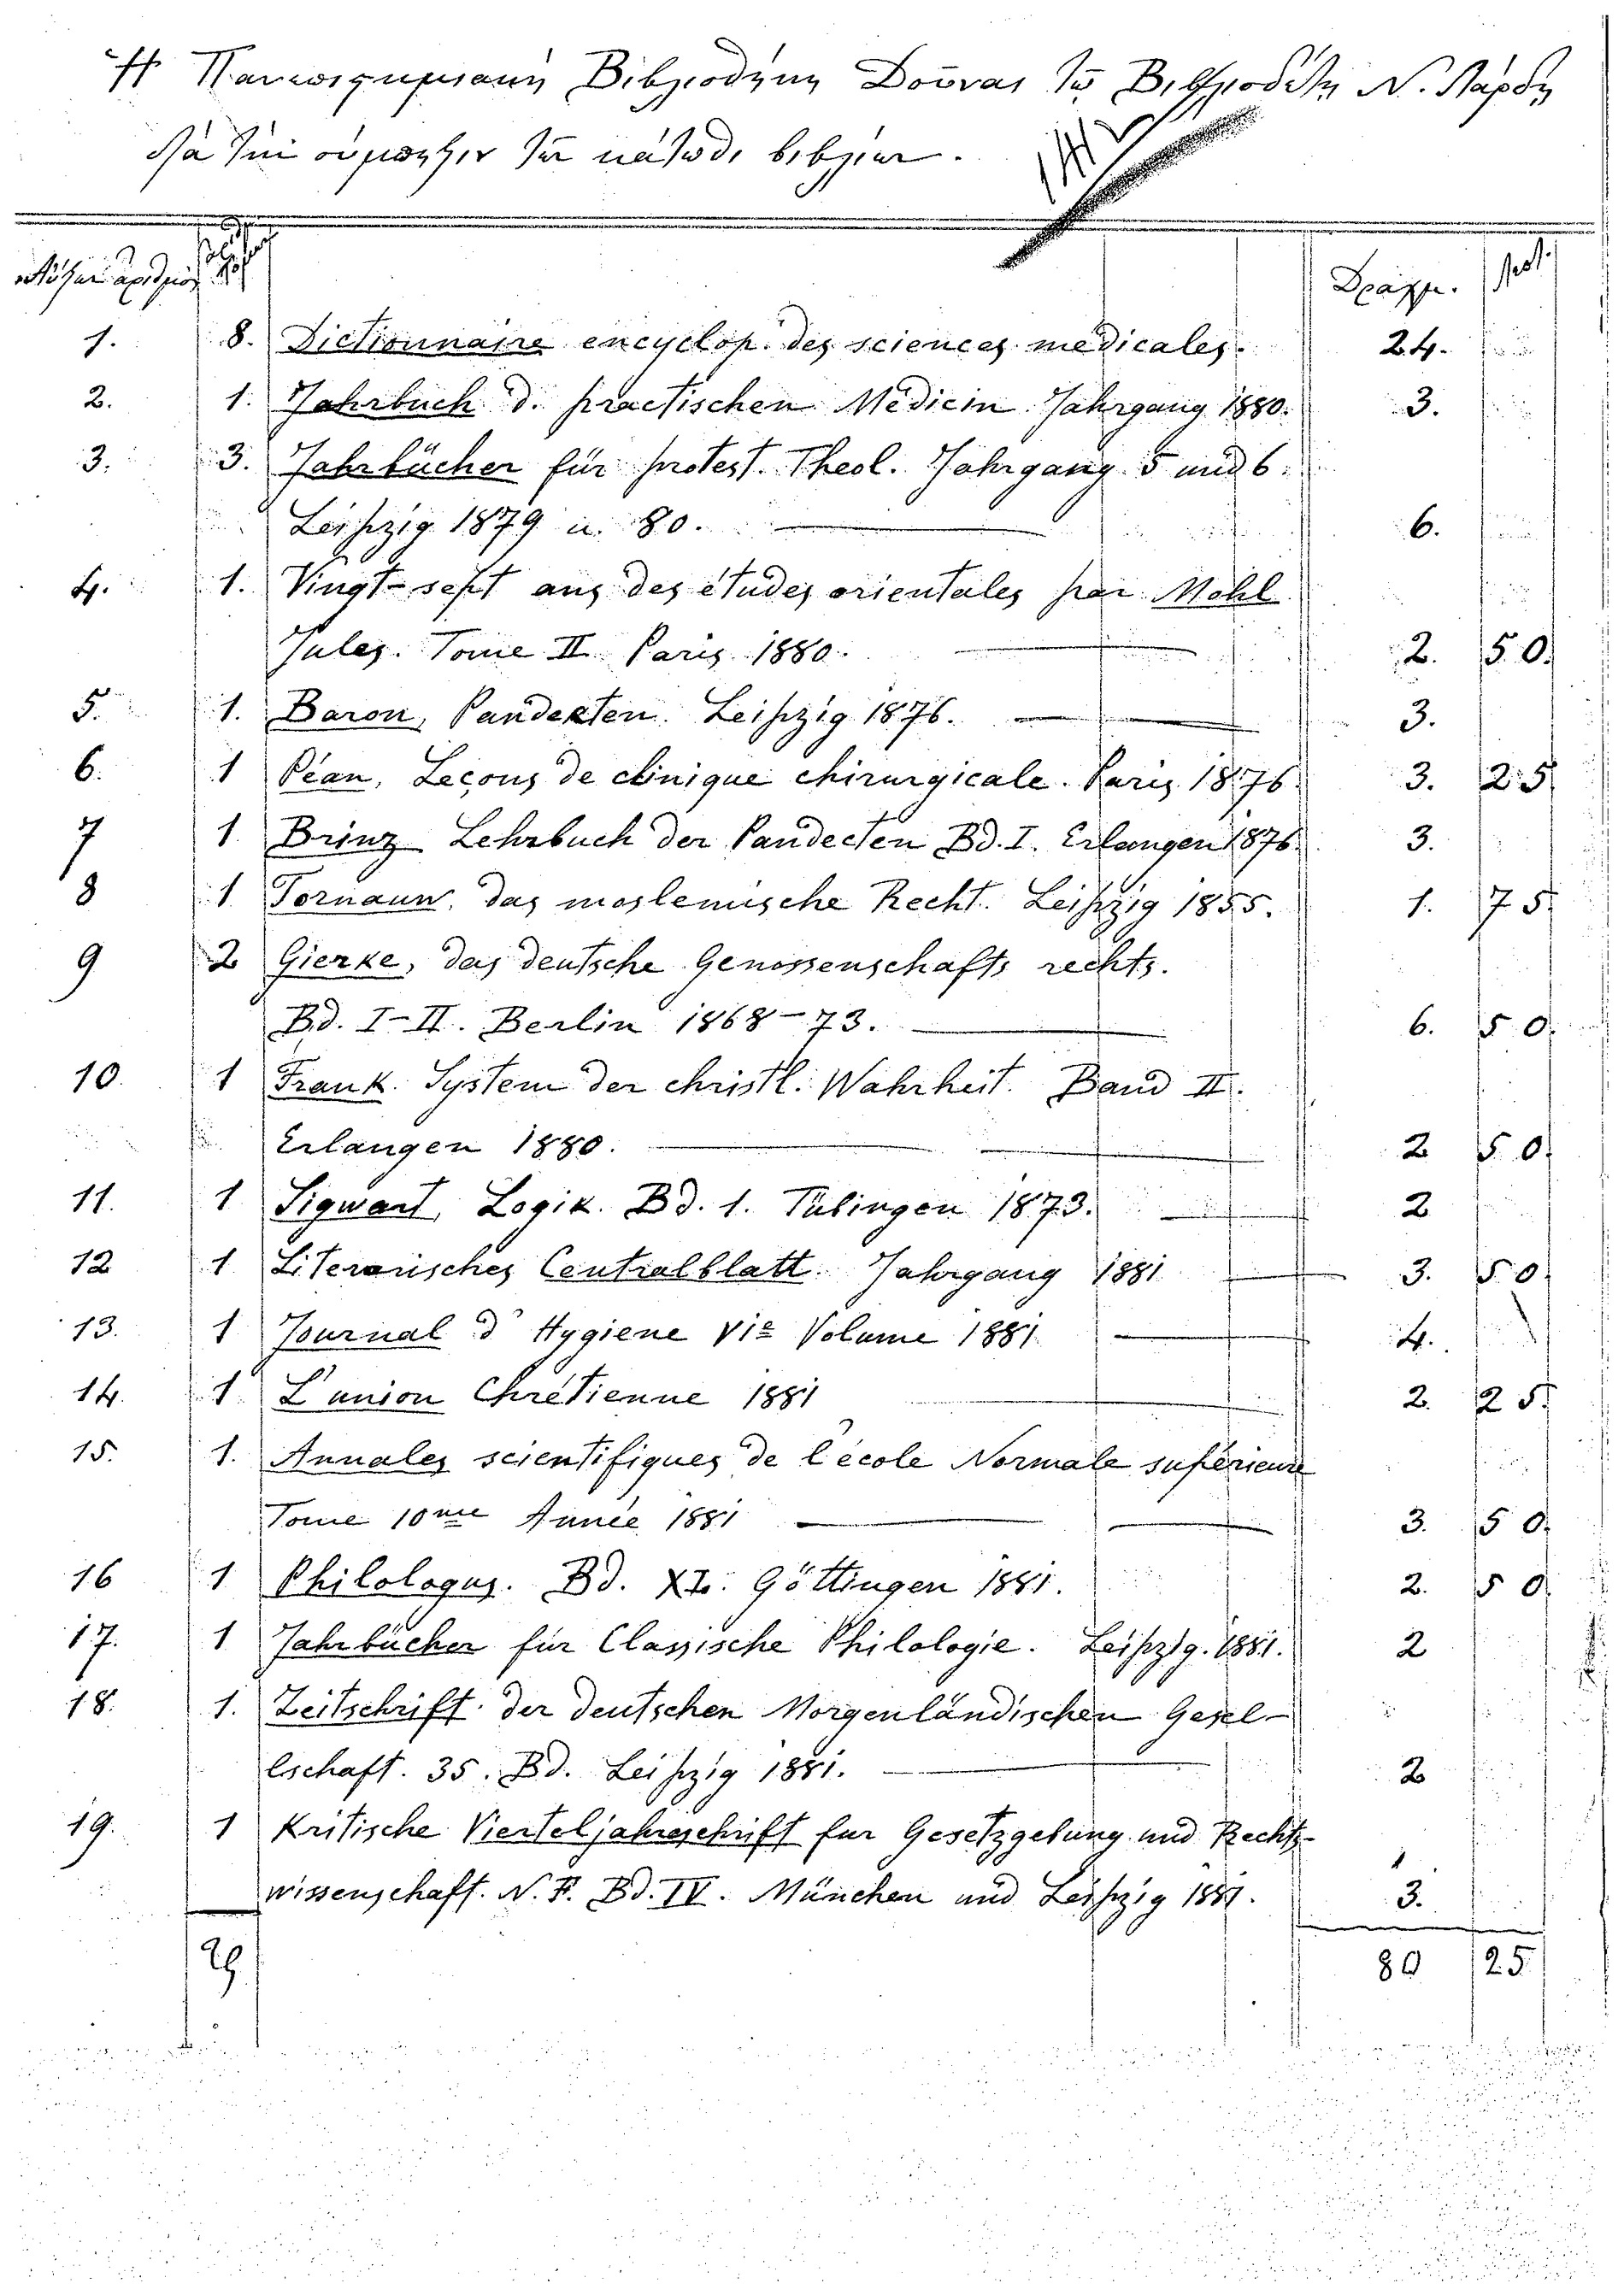 Ἡ Πανεπιστημιακή Βιβλιοθήκη Δοῦναι τῷ Βιβλιοδέτῃ Ν. Λάρδῃ
διὰ τὴν στάχωσιν τῶν κάτωθι βιβλίων.
αὔξων ἀριθμός Δραχμ. λεπτ.
1. 8. Dictionnaire encyclop. des sciences medicales. 24.
2. 1. Jahrbuch d. practischen Medicin Jahrgang 1880. 3.
3. 3. Jahrbücher für protest. Theol. Jahrgang 5 und 6.
Leipzig 1879 u. 80. 6.
4. 1. Vingt-sept ans des études orientales par Mohl
Jules. Tome II. Paris 1880. 2. 50.
5. 1. Baron, Pandekten. Leipzig 1876. 3.
6. 1 Péan, Leçons de clinique chirurgicale. Paris 1876. 3. 25
7 1 Brinz Lehrbuch der Pandecten Bd. I. Erlangen 1876. 3.
8 1 Tornauw, das moslemische Recht. Leipzig 1855. 1. 75.
9 2 Gierke, das deutsche Genossenschafts rechts.
Bd. I-II. Berlin 1868-73. 6. 50.
10. 1 Frank. System der christl. Wahrheit. Band II.
Erlangen 1880. 2 50.
11. 1 Sigwart, Logik. Bd. 1. Tübingen 1873. 2
12 1 Literarisches Centralblatt. Jahrgang 1881 3. 50.
13. 1 Journal d' Hygiene VIe Volume 1881. 4.
14. 1. L'union Chrétienne 1881 2. 25.
15. 1. Annales scientifiques de l'école Normale supérieure
Tome 10me Année 1881 3. 50.
16 1 Philologus. Bd. XL. Göttingen 1881. 2. 50.
17. 1 Jahrbücher für Classische Philologie. Leipzig. 1881. 2
18. 1. Zeitschrift der deutschen Morgenländischen Gesel-
lschaft. 35. Bd. Leipzig 1881. 2
19. 1 Kritische Vierteljahrschrift fur Gesetzgebung und Rechts-
wissenschaft. N. F. Bd. IV. München und Leipzig 1881. 3.
29 80 25